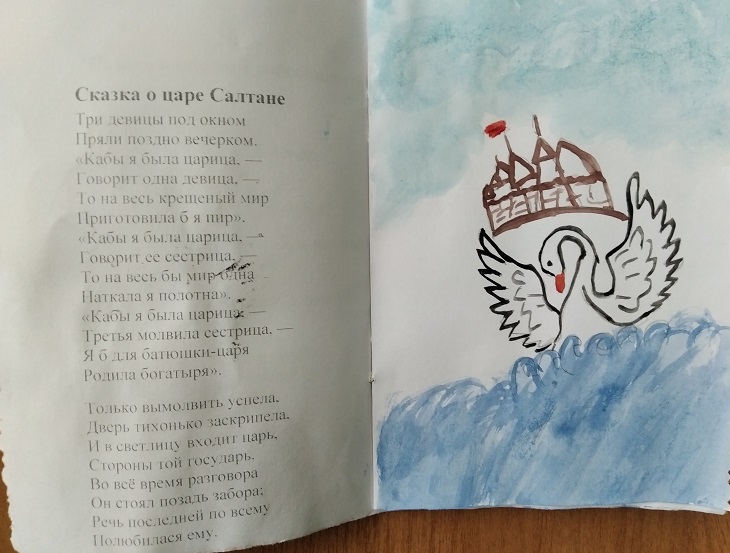 Сказка о царе Салтане
Три девицы под окном
Пряли поздно вечерком.
«Кабы я была царица, —
Говорит одна девица, —
То на весь крещеный мир
Приготовила б я пир».
«Кабы я была царица, —
Говорит ее сестрица, —
То на весь бы мир одна
Наткала я полотна».
«Кабы я была царица, —
Третья молвила сестрица, —
Я б для батюшки-царя
Родила богатыря».
Только вымолвить успела,
Дверь тихонько заскрипела,
И в светлицу входит царь,
Стороны той государь.
Во всё время разговора
Он стоял позадь забора;
Речь последней по всему
Полюбилася ему.